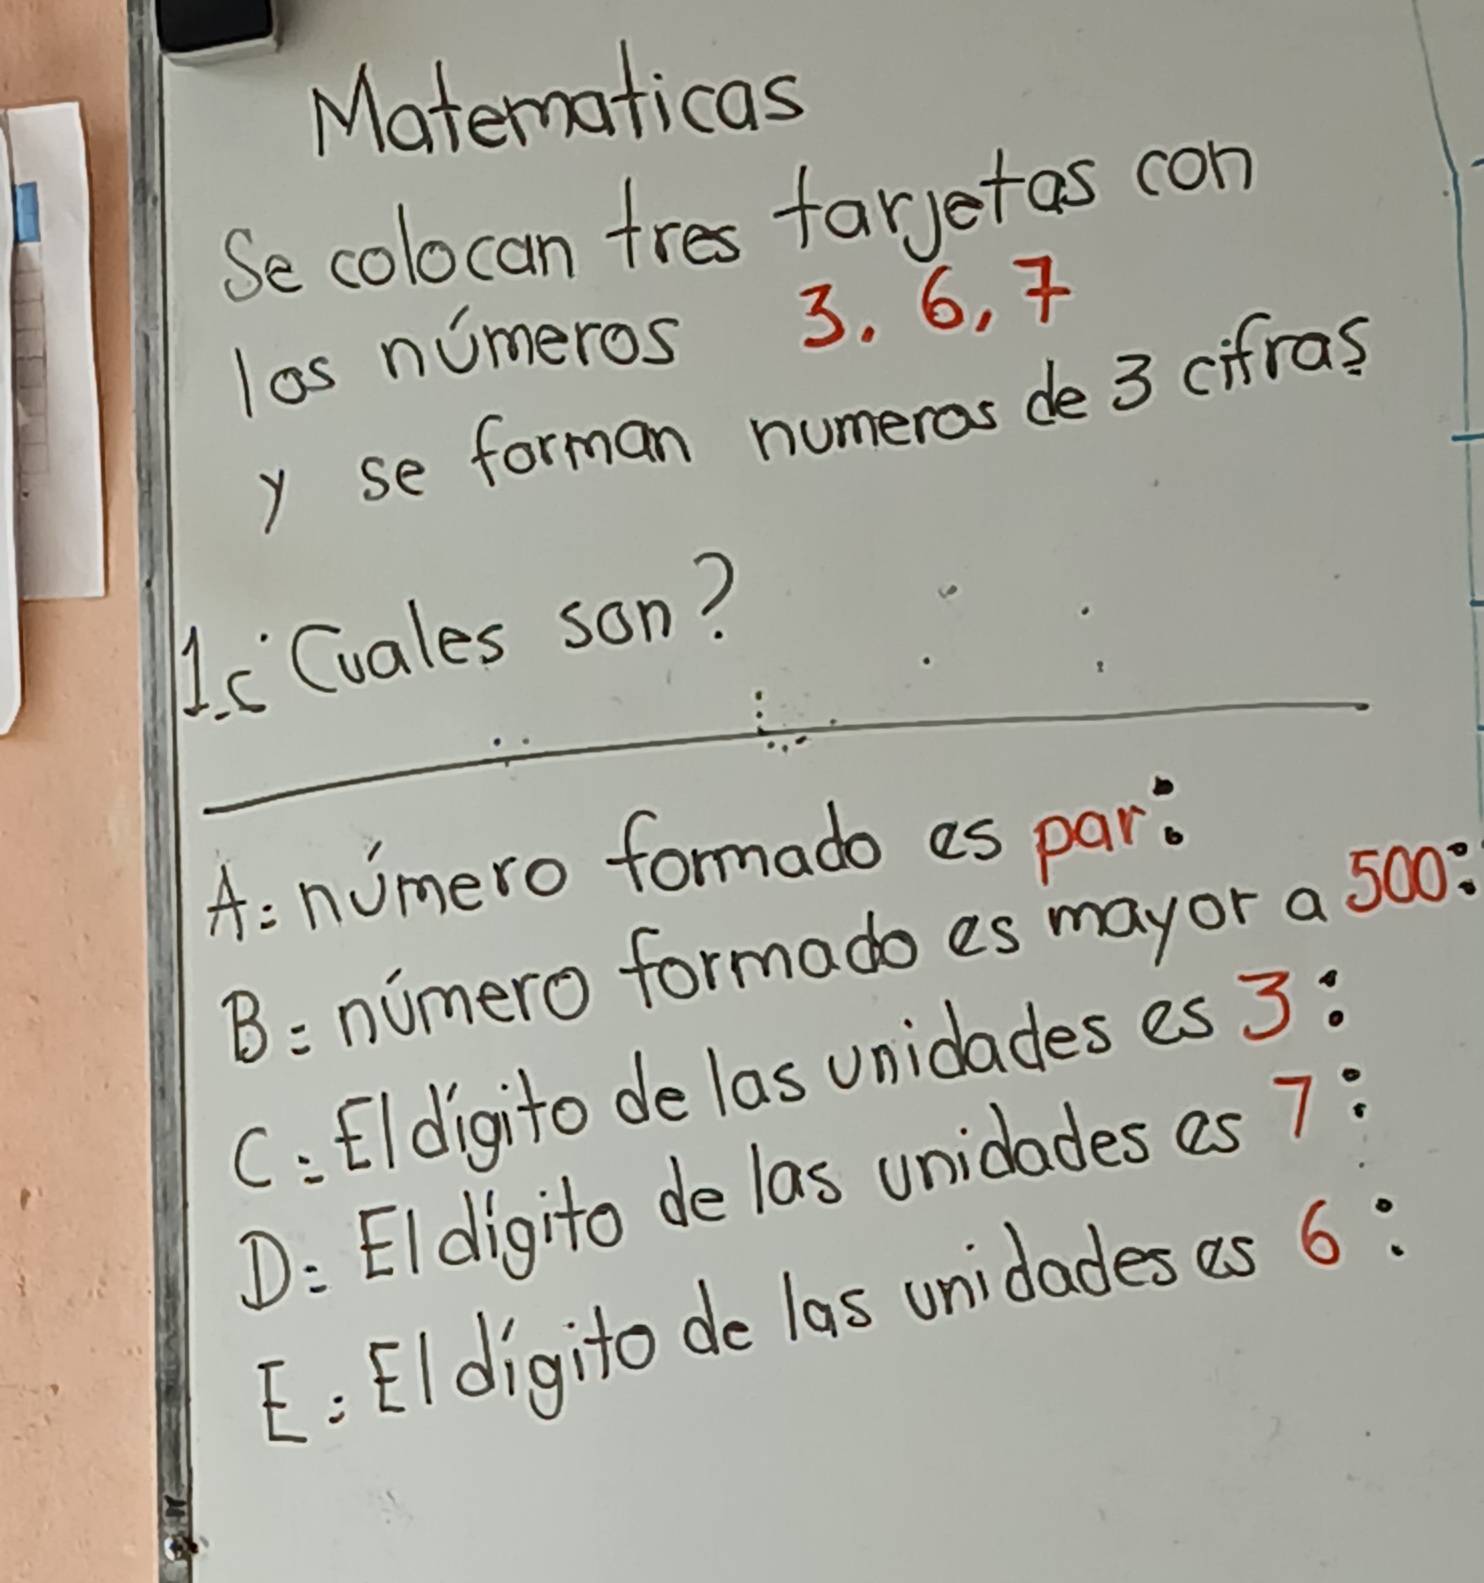 Matematicas
Se colocan tres tarjetas con
los números 3. 6, 7
y se forman numeros de 3 cifras
1.¿Cuales son?
A: número formado es par:
B: número formado es mayor a 500:
C: El dígito de las unidades es 3:
D: El dígito de las unidades es 7:
E: El dígito de las unidades es 6: